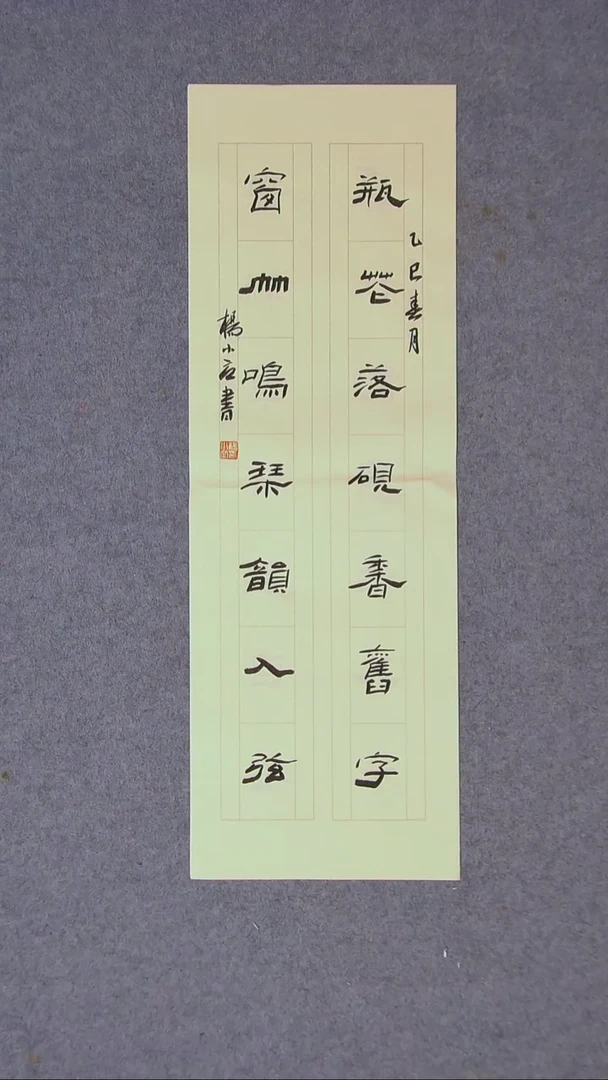 乙巳春月
瓶花落硯香舊字
窗竹鳴琴韻入弦
楊小書